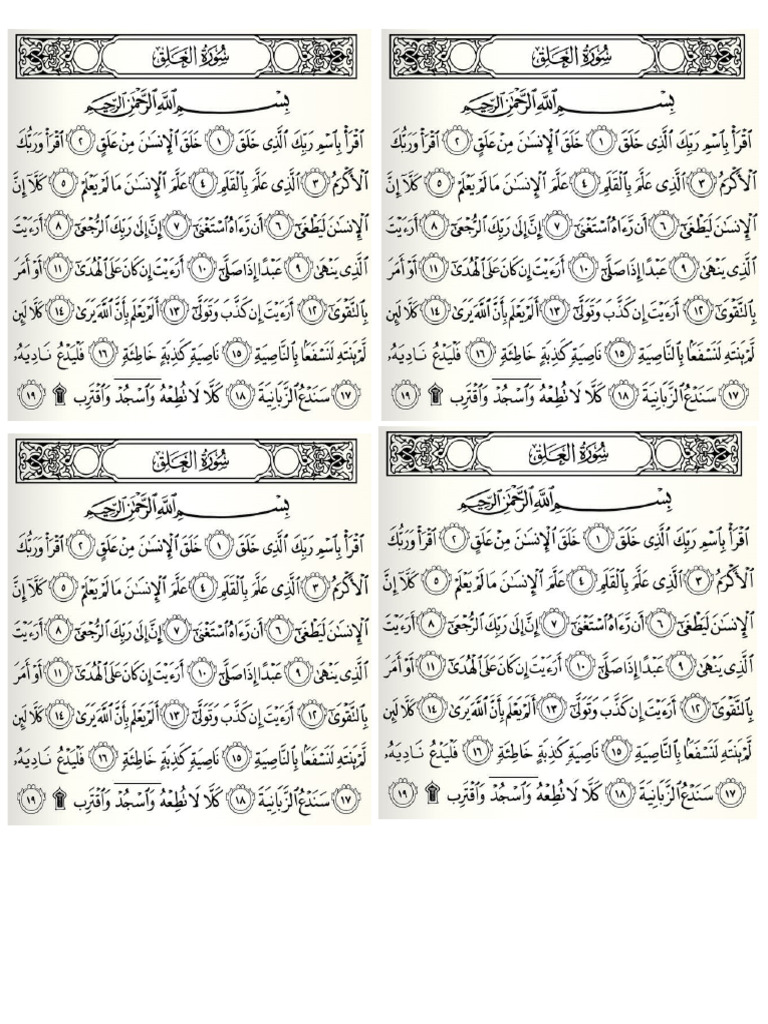 سُورَةُ الْعَلَقِ
بِسْمِ اللَّهِ الرَّحْمَٰنِ الرَّحِيمِ
اقْرَأْ بِاسْمِ رَبِّكَ الَّذِي خَلَقَ ١ خَلَقَ الْإِنسَٰنَ مِنْ عَلَقٍ ٢ اقْرَأْ وَرَبُّكَ
الْأَكْرَمُ ٣ الَّذِي عَلَّمَ بِالْقَلَمِ ٤ عَلَّمَ الْإِنسَٰنَ مَا لَمْ يَعْلَمْ ٥ كَلَّا إِنَّ
الْإِنسَٰنَ لَيَطْغَىٰ ٦ أَن رَّءَاهُ اسْتَغْنَىٰ ٧ إِنَّ إِلَىٰ رَبِّكَ الرُّجْعَىٰ ٨ أَرَءَيْتَ
الَّذِي يَنْهَىٰ ٩ عَبْدًا إِذَا صَلَّىٰ ١٠ أَرَءَيْتَ إِن كَانَ عَلَى الْهُدَىٰ ١١ أَوْ أَمَرَ
بِالتَّقْوَىٰ ١٢ أَرَءَيْتَ إِن كَذَّبَ وَتَوَلَّىٰ ١٣ أَلَمْ يَعْلَم بِأَنَّ اللَّهَ يَرَىٰ ١٤ كَلَّا لَئِن
لَّمْ يَنتَهِ لَنَسْفَعًا بِالنَّاصِيَةِ ١٥ نَاصِيَةٍ كَٰذِبَةٍ خَاطِئَةٍ ١٦ فَلْيَدْعُ نَادِيَهُۥ
١٧ سَنَدْعُ الزَّبَانِيَةَ ١٨ كَلَّا لَا تُطِعْهُ وَاسْجُدْ وَاقْتَرِب ۩ ١٩
سُورَةُ الْعَلَقِ
بِسْمِ اللَّهِ الرَّحْمَٰنِ الرَّحِيمِ
اقْرَأْ بِاسْمِ رَبِّكَ الَّذِي خَلَقَ ١ خَلَقَ الْإِنسَٰنَ مِنْ عَلَقٍ ٢ اقْرَأْ وَرَبُّكَ
الْأَكْرَمُ ٣ الَّذِي عَلَّمَ بِالْقَلَمِ ٤ عَلَّمَ الْإِنسَٰنَ مَا لَمْ يَعْلَمْ ٥ كَلَّا إِنَّ
الْإِنسَٰنَ لَيَطْغَىٰ ٦ أَن رَّءَاهُ اسْتَغْنَىٰ ٧ إِنَّ إِلَىٰ رَبِّكَ الرُّجْعَىٰ ٨ أَرَءَيْتَ
الَّذِي يَنْهَىٰ ٩ عَبْدًا إِذَا صَلَّىٰ ١٠ أَرَءَيْتَ إِن كَانَ عَلَى الْهُدَىٰ ١١ أَوْ أَمَرَ
بِالتَّقْوَىٰ ١٢ أَرَءَيْتَ إِن كَذَّبَ وَتَوَلَّىٰ ١٣ أَلَمْ يَعْلَم بِأَنَّ اللَّهَ يَرَىٰ ١٤ كَلَّا لَئِن
لَّمْ يَنتَهِ لَنَسْفَعًا بِالنَّاصِيَةِ ١٥ نَاصِيَةٍ كَٰذِبَةٍ خَاطِئَةٍ ١٦ فَلْيَدْعُ نَادِيَهُۥ
١٧ سَنَدْعُ الزَّبَانِيَةَ ١٨ كَلَّا لَا تُطِعْهُ وَاسْجُدْ وَاقْتَرِب ۩ ١٩
سُورَةُ الْعَلَقِ
بِسْمِ اللَّهِ الرَّحْمَٰنِ الرَّحِيمِ
اقْرَأْ بِاسْمِ رَبِّكَ الَّذِي خَلَقَ ١ خَلَقَ الْإِنسَٰنَ مِنْ عَلَقٍ ٢ اقْرَأْ وَرَبُّكَ
الْأَكْرَمُ ٣ الَّذِي عَلَّمَ بِالْقَلَمِ ٤ عَلَّمَ الْإِنسَٰنَ مَا لَمْ يَعْلَمْ ٥ كَلَّا إِنَّ
الْإِنسَٰنَ لَيَطْغَىٰ ٦ أَن رَّءَاهُ اسْتَغْنَىٰ ٧ إِنَّ إِلَىٰ رَبِّكَ الرُّجْعَىٰ ٨ أَرَءَيْتَ
الَّذِي يَنْهَىٰ ٩ عَبْدًا إِذَا صَلَّىٰ ١٠ أَرَءَيْتَ إِن كَانَ عَلَى الْهُدَىٰ ١١ أَوْ أَمَرَ
بِالتَّقْوَىٰ ١٢ أَرَءَيْتَ إِن كَذَّبَ وَتَوَلَّىٰ ١٣ أَلَمْ يَعْلَم بِأَنَّ اللَّهَ يَرَىٰ ١٤ كَلَّا لَئِن
لَّمْ يَنتَهِ لَنَسْفَعًا بِالنَّاصِيَةِ ١٥ نَاصِيَةٍ كَٰذِبَةٍ خَاطِئَةٍ ١٦ فَلْيَدْعُ نَادِيَهُۥ
١٧ سَنَدْعُ الزَّبَانِيَةَ ١٨ كَلَّا لَا تُطِعْهُ وَاسْجُدْ وَاقْتَرِب ۩ ١٩
سُورَةُ الْعَلَقِ
بِسْمِ اللَّهِ الرَّحْمَٰنِ الرَّحِيمِ
اقْرَأْ بِاسْمِ رَبِّكَ الَّذِي خَلَقَ ١ خَلَقَ الْإِنسَٰنَ مِنْ عَلَقٍ ٢ اقْرَأْ وَرَبُّكَ
الْأَكْرَمُ ٣ الَّذِي عَلَّمَ بِالْقَلَمِ ٤ عَلَّمَ الْإِنسَٰنَ مَا لَمْ يَعْلَمْ ٥ كَلَّا إِنَّ
الْإِنسَٰنَ لَيَطْغَىٰ ٦ أَن رَّءَاهُ اسْتَغْنَىٰ ٧ إِنَّ إِلَىٰ رَبِّكَ الرُّجْعَىٰ ٨ أَرَءَيْتَ
الَّذِي يَنْهَىٰ ٩ عَبْدًا إِذَا صَلَّىٰ ١٠ أَرَءَيْتَ إِن كَانَ عَلَى الْهُدَىٰ ١١ أَوْ أَمَرَ
بِالتَّقْوَىٰ ١٢ أَرَءَيْتَ إِن كَذَّبَ وَتَوَلَّىٰ ١٣ أَلَمْ يَعْلَم بِأَنَّ اللَّهَ يَرَىٰ ١٤ كَلَّا لَئِن
لَّمْ يَنتَهِ لَنَسْفَعًا بِالنَّاصِيَةِ ١٥ نَاصِيَةٍ كَٰذِبَةٍ خَاطِئَةٍ ١٦ فَلْيَدْعُ نَادِيَهُۥ
١٧ سَنَدْعُ الزَّبَانِيَةَ ١٨ كَلَّا لَا تُطِعْهُ وَاسْجُدْ وَاقْتَرِب ۩ ١٩